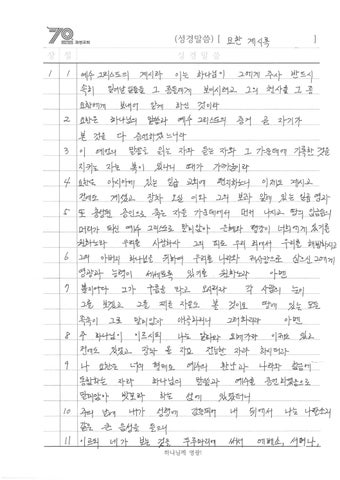 70 과천교회
(성경말씀) [ 요한 계시록 ]
장 절 성 경 말 씀
1 1 예수 그리스도의 계시라 이는 하나님이 그에게 주사 반드시
속히 일어날 일들을 그 종들에게 보이시려고 그의 천사를 그 종
요한에게 보내어 알게 하신 것이라
2 요한은 하나님의 말씀과 예수 그리스도의 증거 곧 자기가
본 것을 다 증언하였느니라
3 이 예언의 말씀을 읽는 자와 듣는 자와 그 가운데에 기록한 것을
지키는 자는 복이 있나니 때가 가까움이라
4 요한은 아시아에 있는 일곱 교회에 편지하노니 이제도 계시고
전에도 계셨고 장차 오실 이와 그의 보좌 앞에 있는 일곱 영과
5 또 충성된 증인으로 죽은 자들 가운데에서 먼저 나시고 땅의 임금들의
머리가 되신 예수 그리스도로 말미암아 은혜와 평강이 너희에게 있기를
원하노라 우리를 사랑하사 그의 피로 우리 죄에서 우리를 해방하시고
6 그의 아버지 하나님을 위하여 우리를 나라와 제사장으로 삼으신 그에게
영광과 능력이 세세토록 있기를 원하노라 아멘
7 볼지어다 그가 구름을 타고 오시리라 각 사람의 눈이
그를 보겠고 그를 찌른 자들도 볼 것이요 땅에 있는 모든
족속이 그로 말미암아 애곡하리니 그러하리라 아멘
8 주 하나님이 이르시되 나는 알파와 오메가라 이제도 있고
전에도 있었고 장차 올 자요 전능한 자라 하시더라
9 나 요한은 너희 형제요 예수의 환난과 나라와 참음에
동참하는 자라 하나님의 말씀과 예수를 증언하였음으로
말미암아 밧모라 하는 섬에 있었더니
10 주의 날에 내가 성령에 감동되어 내 뒤에서 나는 나팔소리
같은 큰 음성을 들으니
11 이르되 네가 보는 것을 두루마리에 써서 에베소, 서머나,
하나님께 영광!